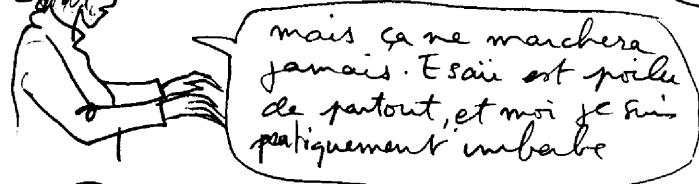 mais ça ne marchera
jamais. Esaü est poilu
de partout, et moi je suis
pratiquement imberbe